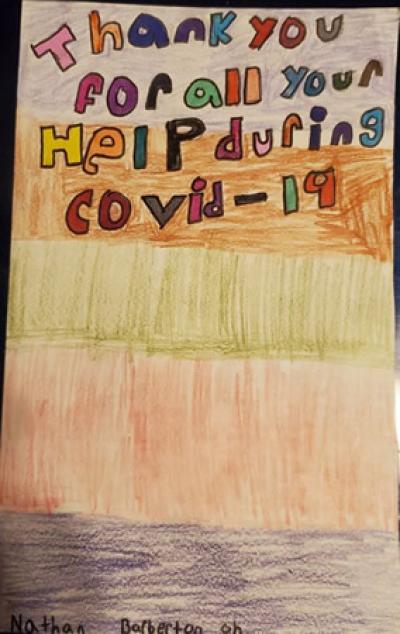 Thank you
for all your
Help during
covid-19
Nathan Barberton oh